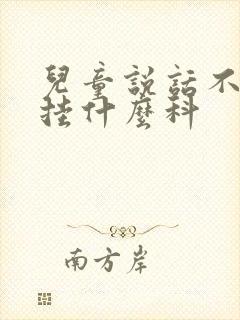 兒童說話不
挂什麼科
南方岸